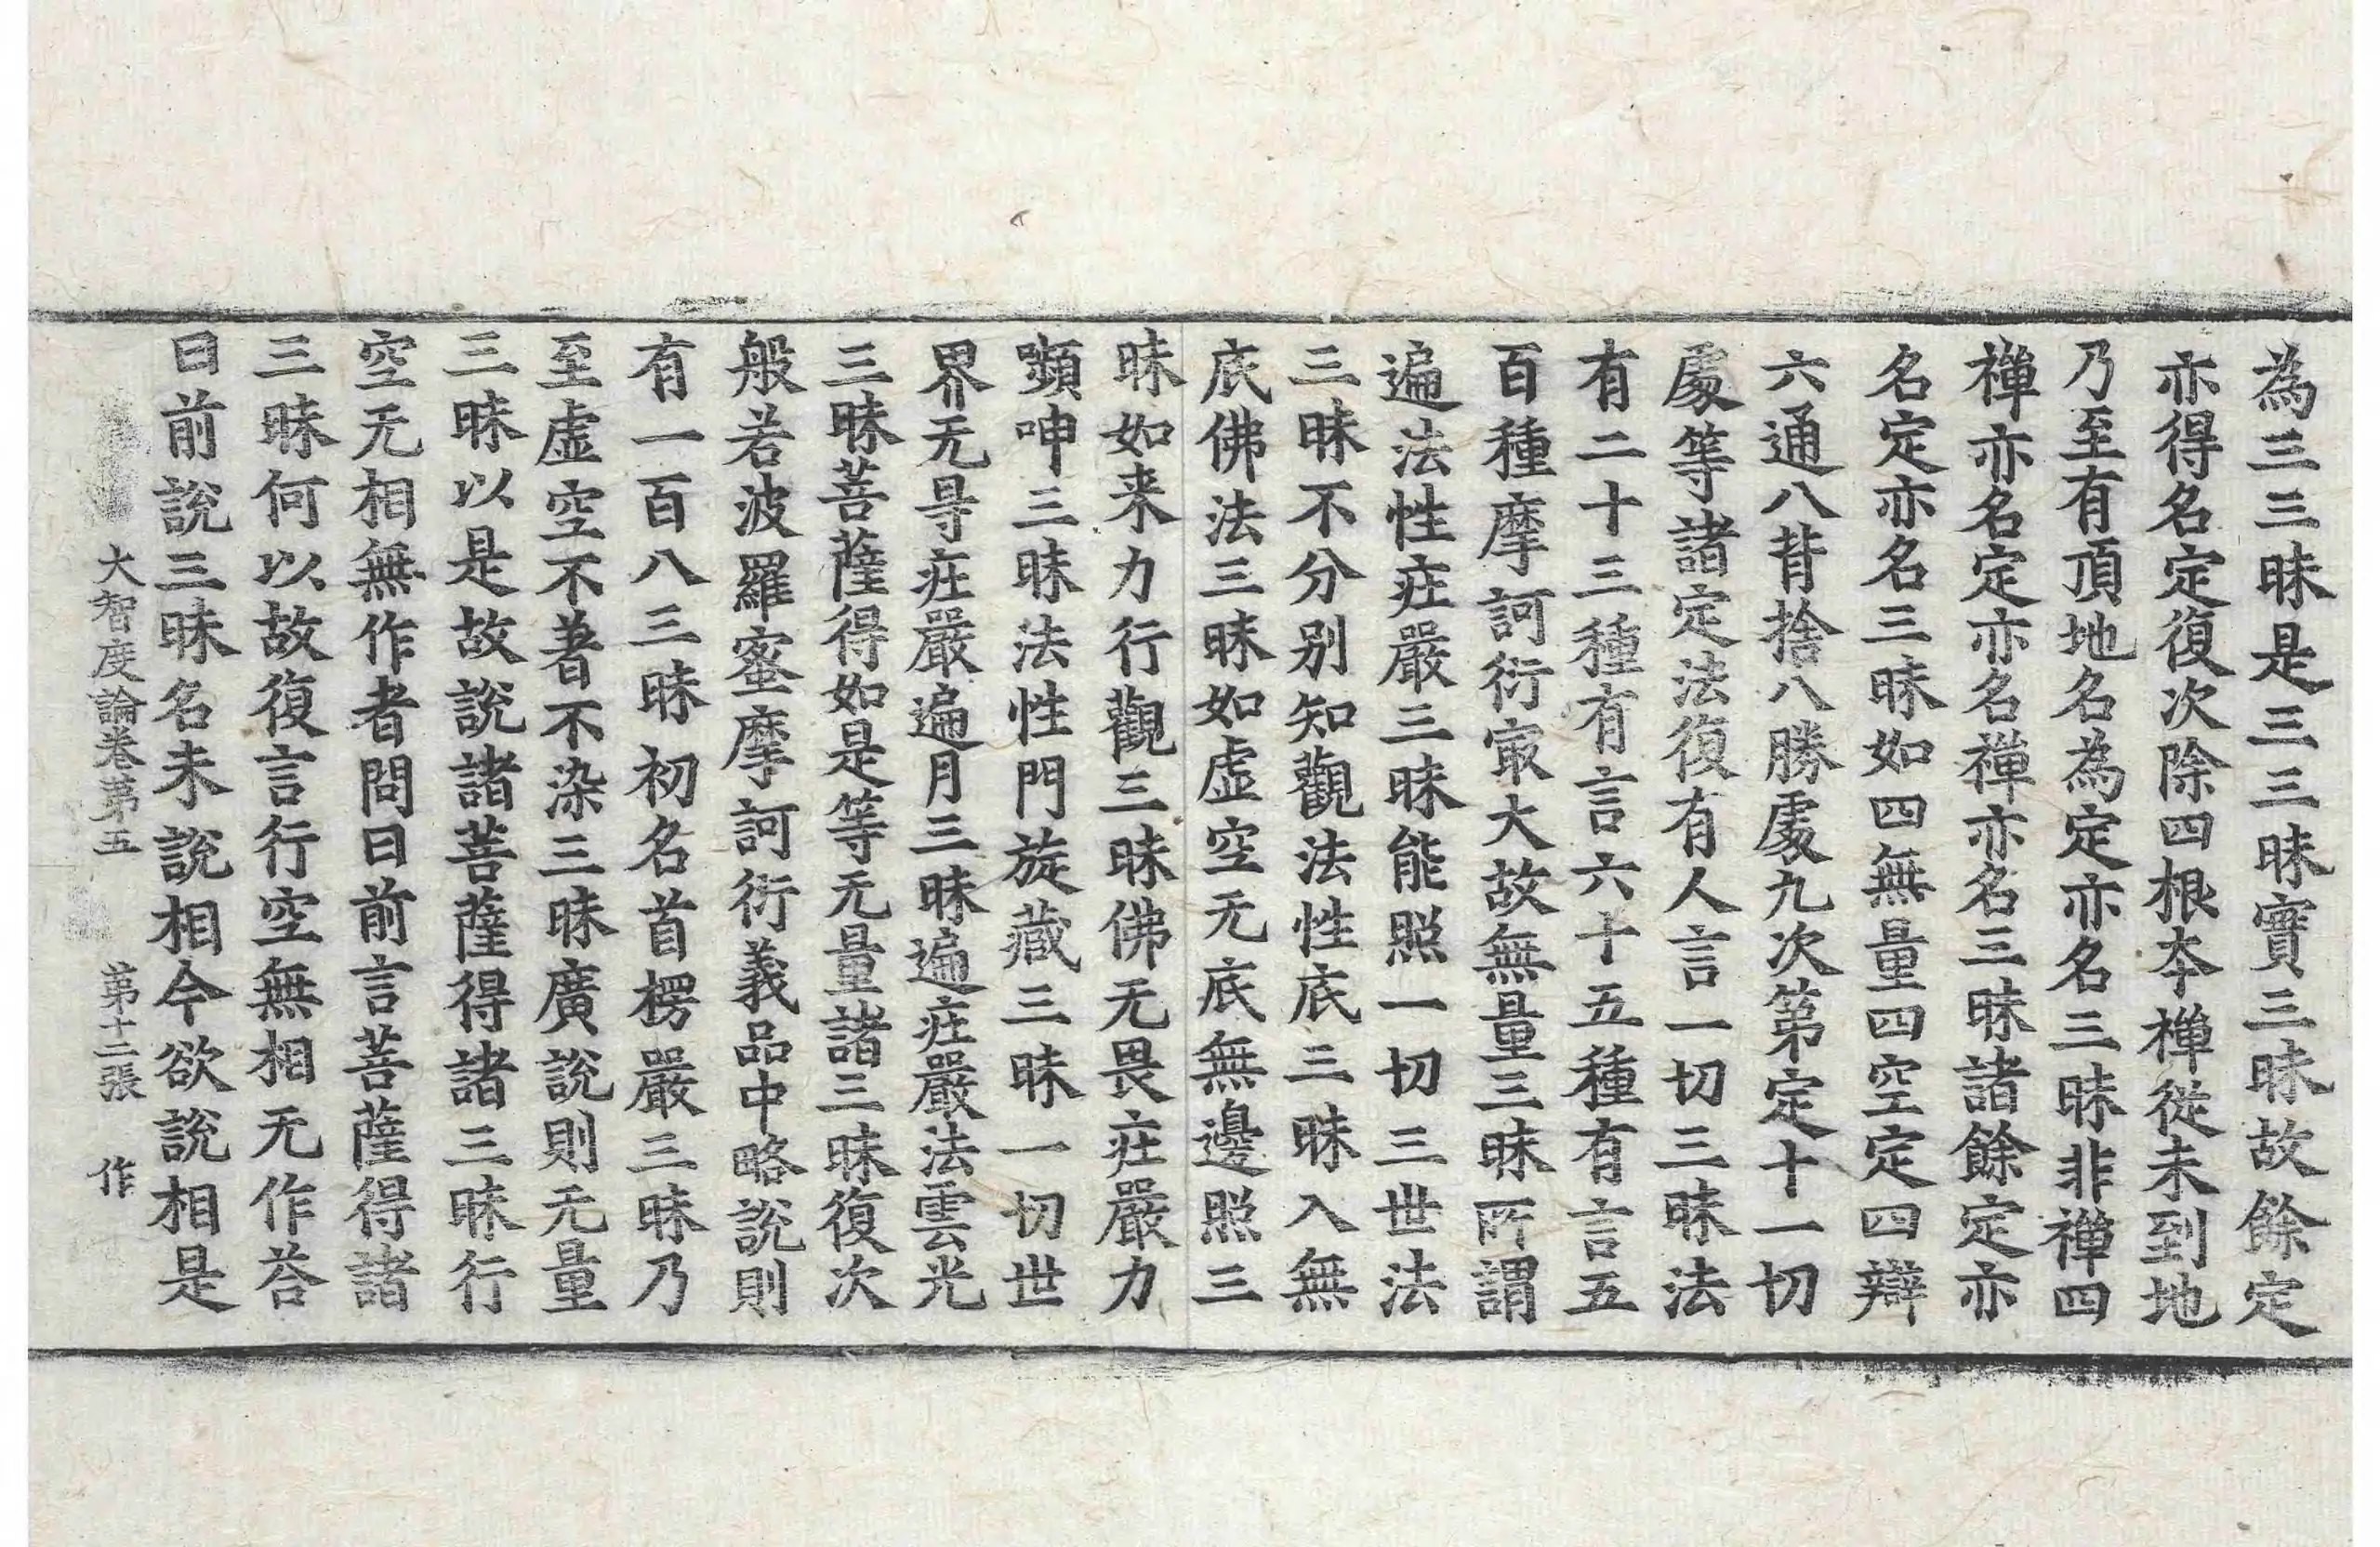 為三三昧是三三昧實三昧故餘定
亦得名定復次除四根夲禅從未到地
乃至有頂地名為定亦名三昧非禅四
禅亦名定亦名禅亦名三昧諸餘定亦
名定亦名三昧如四無量四空定四辯
六通八背捨八勝處九次第定十一切
處等諸定法復有人言一切三昧法
有二十三種有言六十五種有言五
百種摩訶衍㝡大故無量三昧所謂
遍法性㽵嚴三昧能照一切三世法
三昧不分别知觀法性底三昧入無
底佛法三昧如虛空无底無邊照三
昧如来力行觀三昧佛无畏㽵嚴力
顰呻三昧法性門旋藏三昧一切世
界无㝵㽵嚴遍月三昧遍㽵嚴法雲光
三昧菩薩得如是等无量諸三昧復次
般若波羅蜜摩訶衍義品中略說則
有一百八三昧初名首楞嚴三昧乃
至虛空不著不染三昧廣說則无量
三昧以是故說諸菩薩得諸三昧行
空无相無作者問曰前言菩薩得諸
三昧何以故復言行空無相无作荅
曰前說三昧名未說相今欲說相是
大智度論卷第五 第十二張 作